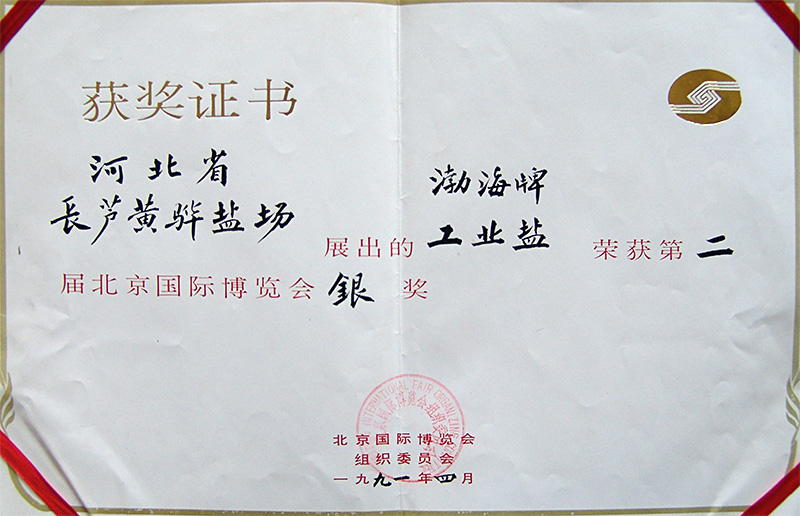 获奖证书
河北省
長芦黄骅盐场 展出的 渤海牌 工业盐 荣获第二
届北京国际博览会銀奖
INTERNATIONAL FAIR ORGANIZING
北京国际博览会
组织委员会
一九九一年四月